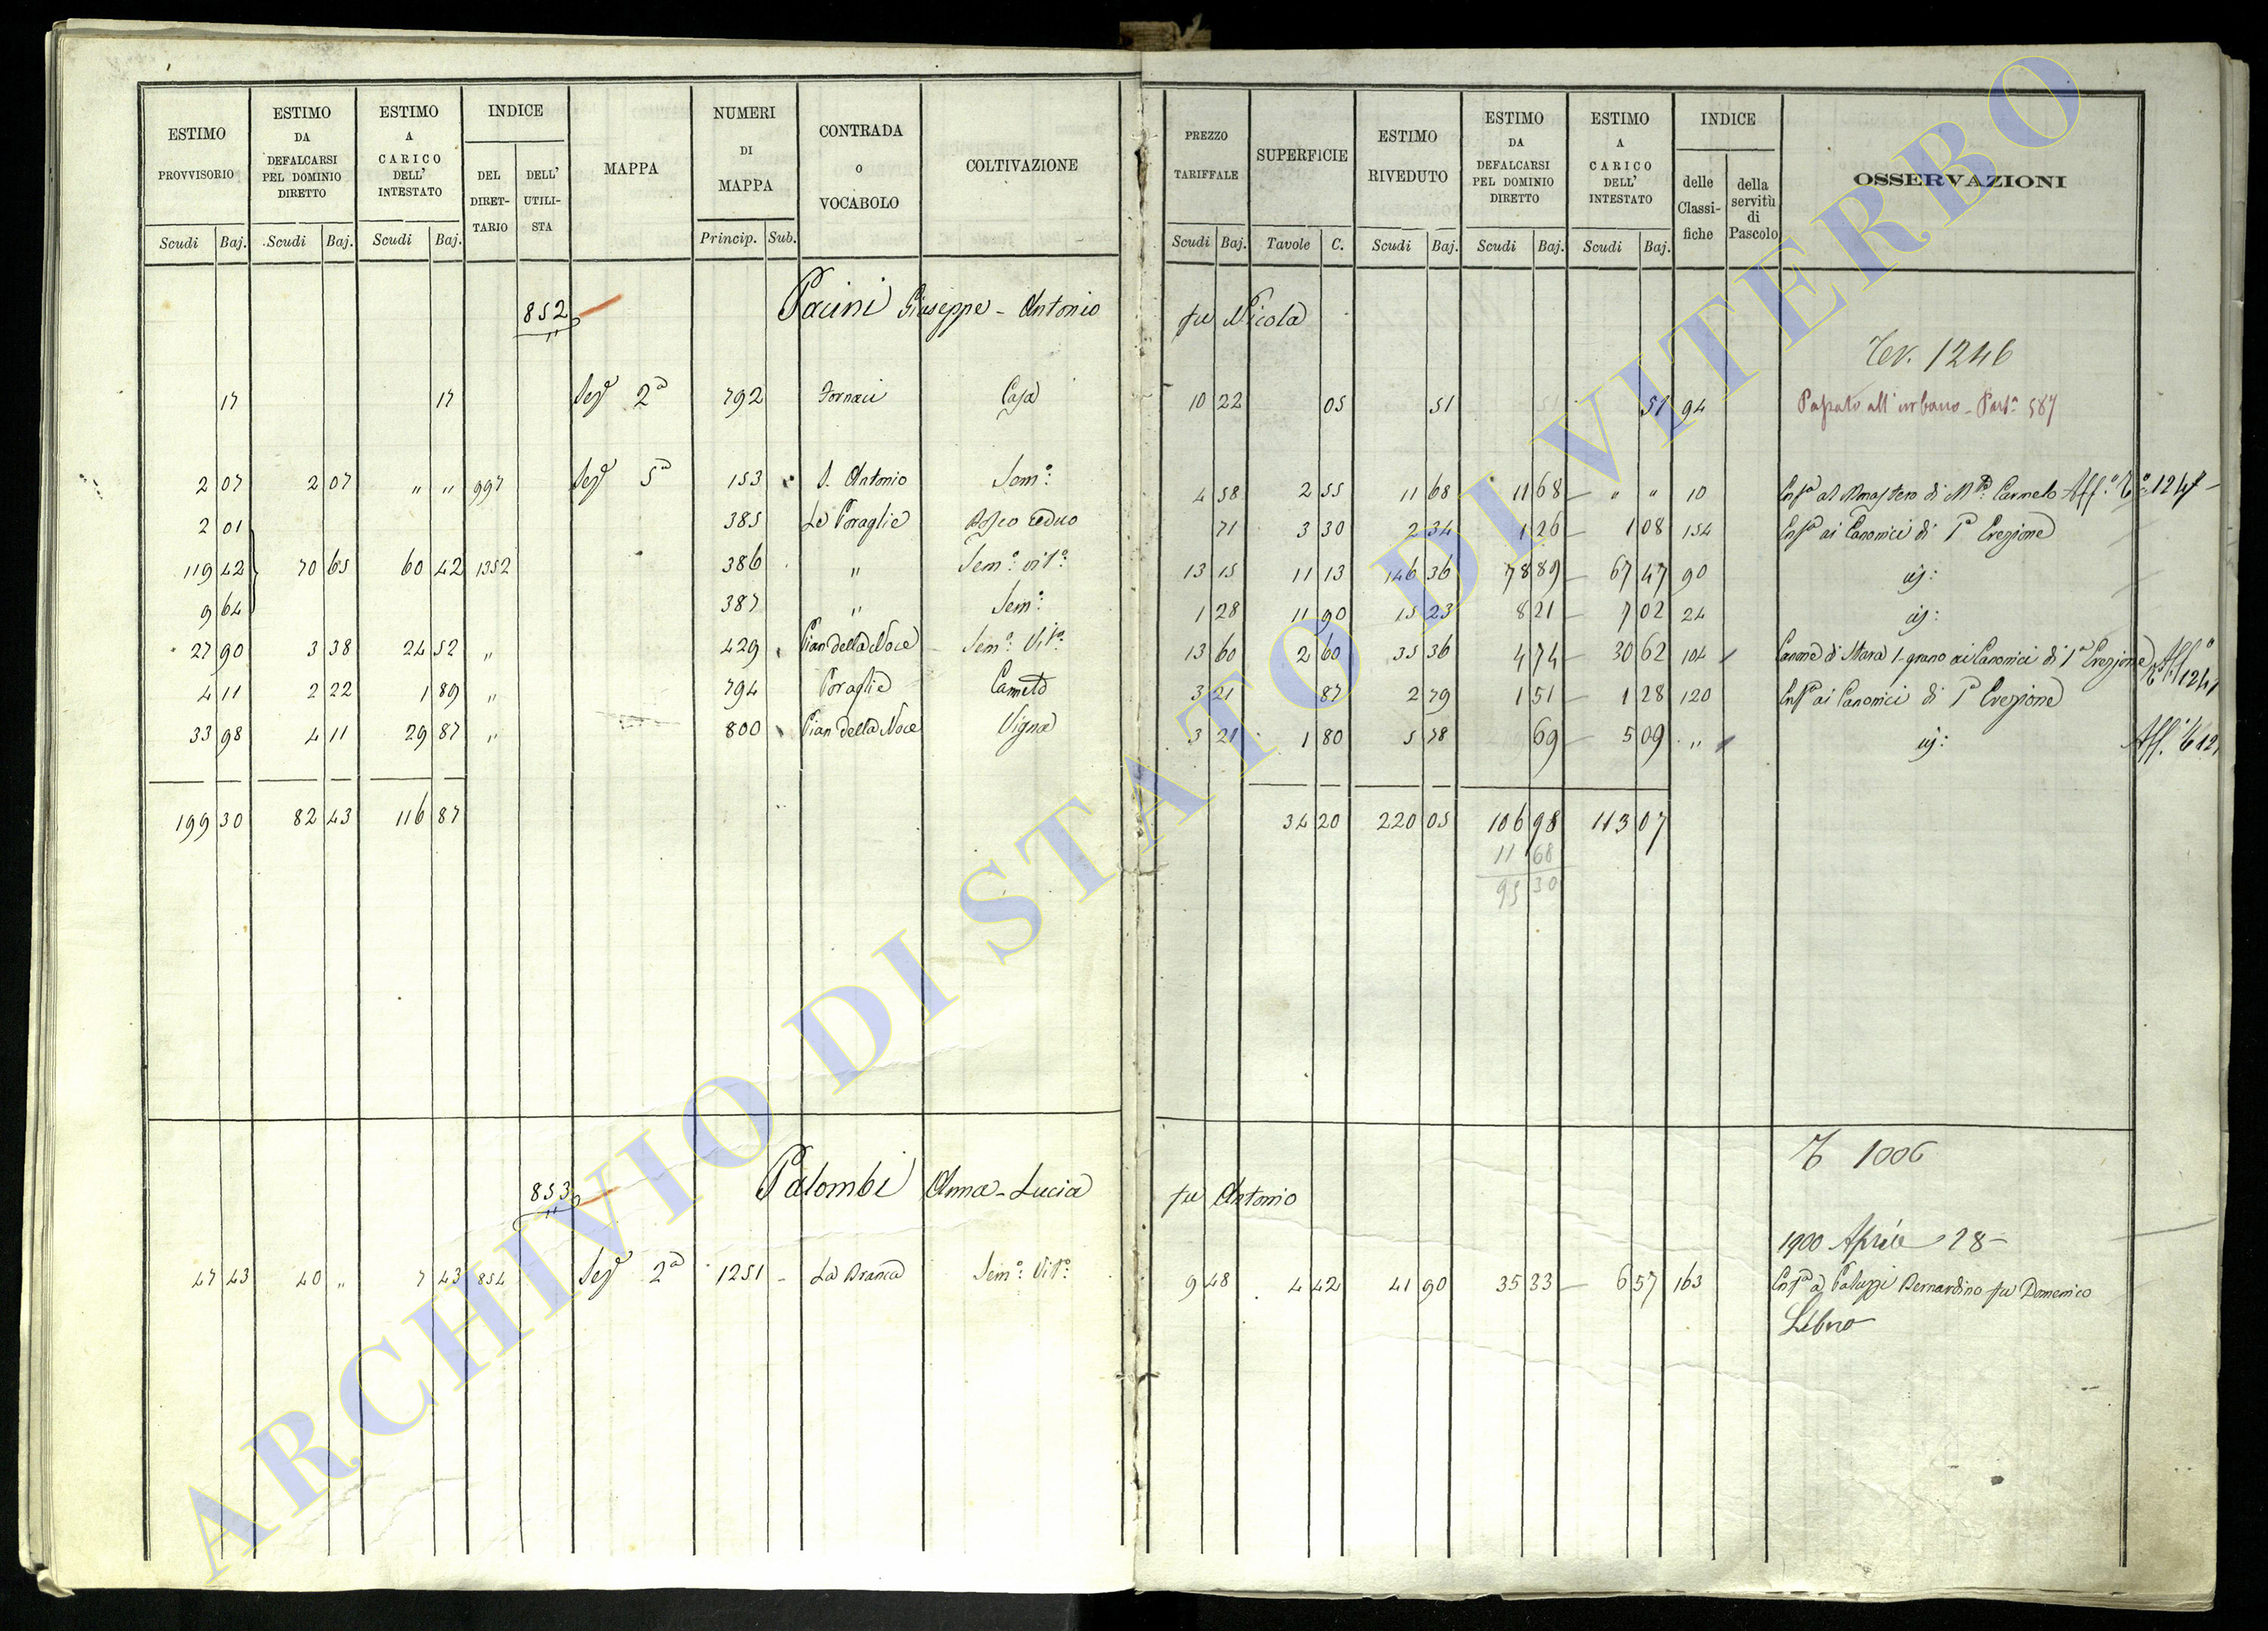 ESTIMO PROVVISORIO
ESTIMO DA DEFALCARSI PEL DOMINIO DIRETTO
ESTIMO A CARICO DELL' INTESTATO
INDICE
DEL DIRET- TARIO
DELL' UTILI- STA
MAPPA
NUMERI DI MAPPA
CONTRADA o VOCABOLO
COLTIVAZIONE
PREZZO TARIFFALE
SUPERFICIE
ESTIMO RIVEDUTO
ESTIMO DA DEFALCARSI PEL DOMINIO DIRETTO
ESTIMO A CARICO DELL' INTESTATO
INDICE
delle Classi- fiche
della servitù di Pascolo
OSSERVAZIONI
Scudi Baj. Scudi Baj. Scudi Baj. Princip. Sub. Scudi Baj. Tavole C. Scudi Baj. Scudi Baj. Scudi Baj.
852 Pacini Giuseppe - Antonio fu Nicola
Tev. 1246
17 17 Sez 2a 792 Fornaci Casa 10 22 05 51 51 94 Passato all' urbano - Part. 587
2 07 2 07 " " 997 Sez 5a 153 S. Antonio Sem.o 4 58 2 55 11 68 11 68 " " 10 Enfa al Monastero di Ma Carmelo Aff.o T.o 1247
2 01 385 Le Poraglie Bosco ceduo 71 3 30 2 34 1 26 1 08 154 Enfa ai Canonici di Ia Erezione
119 42 70 65 60 42 1352 386 " Sem.o vit.o 13 15 11 13 146 36 78 89 67 47 90
9 64 387 " Sem.o 1 28 11 90 15 23 8 21 7 02 24
27 90 3 38 24 52 " 429 Pian della Noce Sem.o Vit.o 13 60 2 60 35 36 4 74 30 62 104 Canone di Stara 1 grano ai Canonici di Ia Erezione Aff.o 1247
4 11 2 22 1 89 " 794 Poraglie Canneto 3 21 87 2 79 1 51 1 28 120 Enfa ai Canonici di Ia Erezione
33 98 4 11 29 87 " 800 Pian della Noce Vigna 3 21 1 80 5 78 69 5 09 " Aff.
199 30 82 43 116 87 34 20 220 05 106 98 113 07
11 68
95 30
T 1006
853 Palombi Anna - Lucia fu Antonio
1900 Aprile 28
47 43 40 " 7 43 854 Sez 2a 1251 La Branca Sem.o Vit.o 9 48 4 42 41 90 35 33 6 57 163 Enfa a Paluzzi Bernardino fu Domenico
Libero
ARCHIVIO DI STATO DI VITERBO